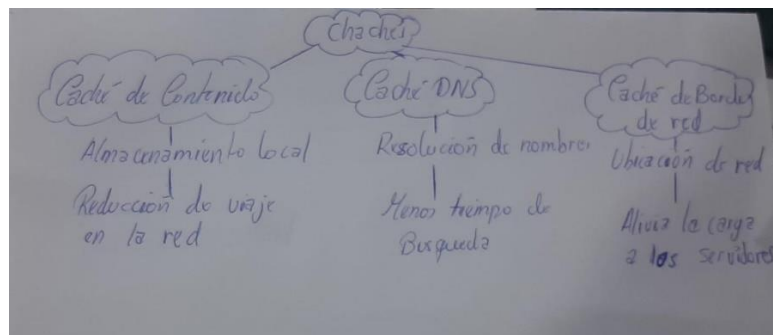 Chachés
Caché de Contenido
Almacenamiento local
Reducción de viaje
en la red
Caché DNS
Resolución de nombre
Menos tiempo de
Busqueda
Caché de Bordes
de red
Ubicación de red
Alivia la carga
a los servidores